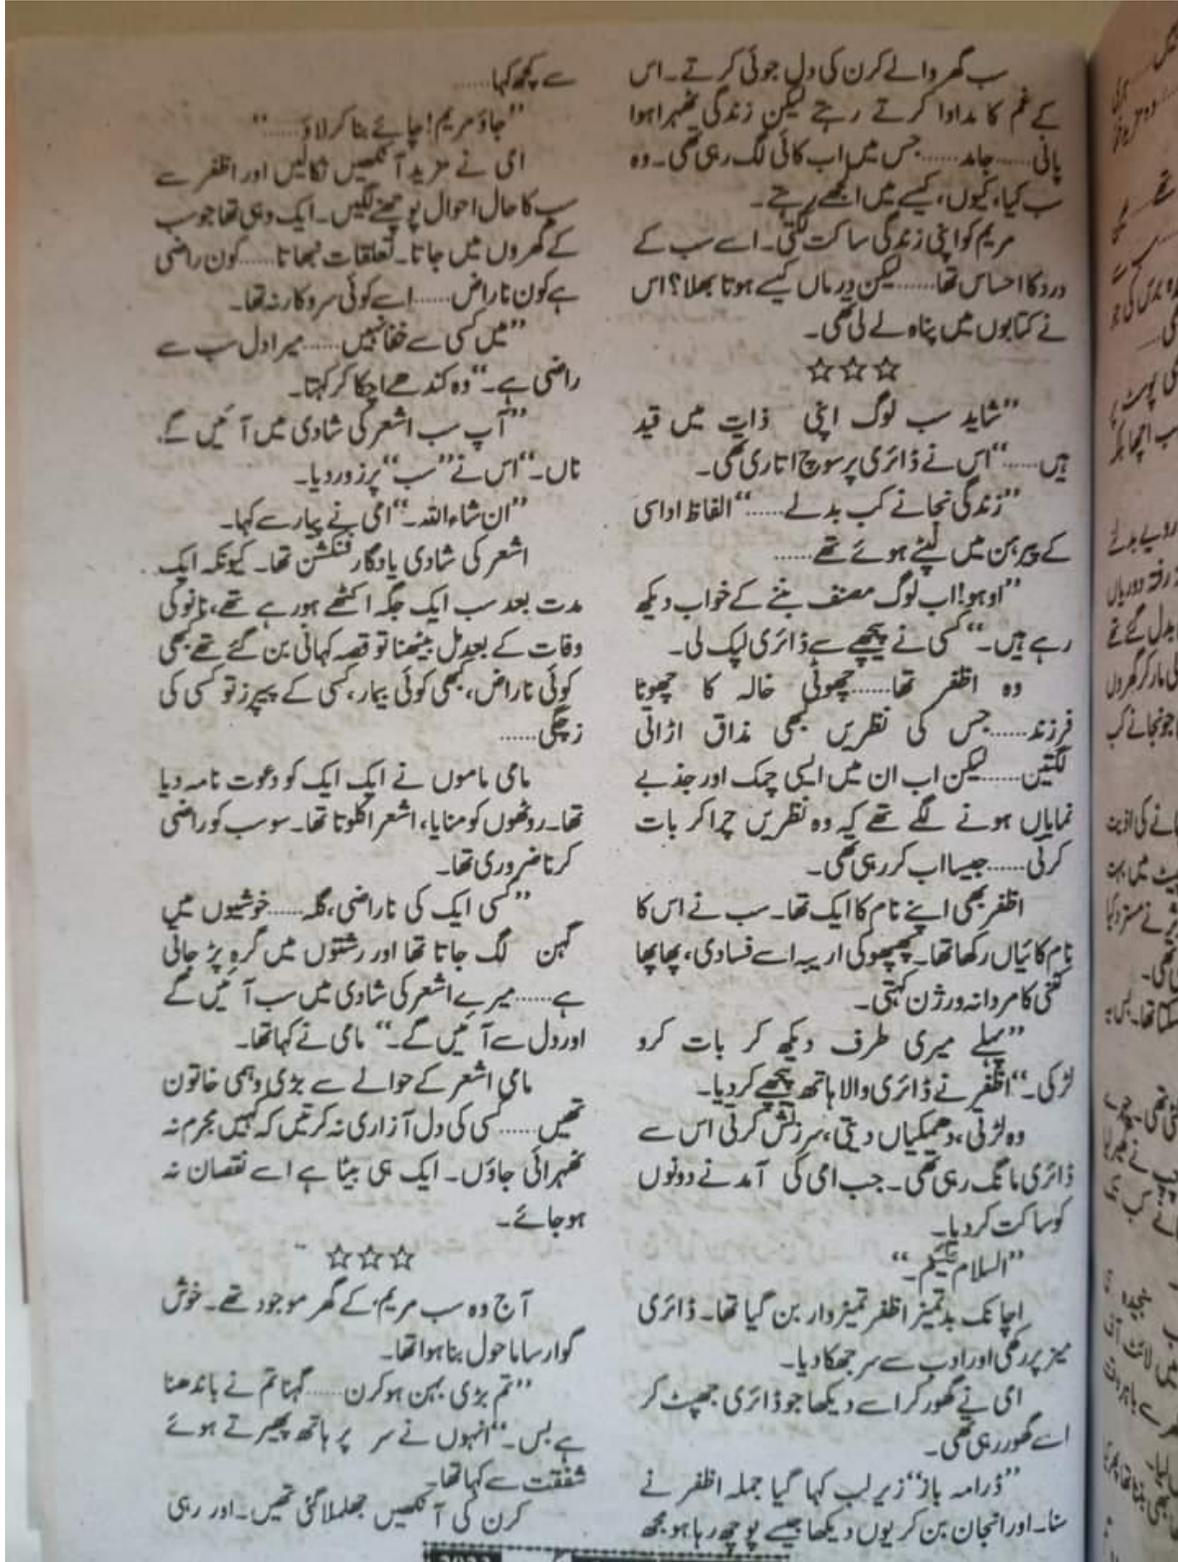 سب گھر والے کرن کی دل جوئی کرتے۔ اس
کے غم کا مداوا کرتے رہتے لیکن زندگی ٹھہرا ہوا
پانی...... جامد...... جس میں اب کائی لگ رہی تھی۔ وہ
سب کیا، کیوں، کیسے میں الجھے رہتے۔
مریم کو اپنی زندگی ساکت لگتی۔ اسے سب کے
درد کا احساس تھا...... لیکن درماں کیسے ہوتا بھلا؟ اس
نے کتابوں میں پناہ لے لی تھی۔
☆☆☆
”شاید سب لوگ اپنی ذات میں قید
ہیں......“ اس نے ڈائری پر سوچ اتاری تھی۔
”زندگی نجانے کب بدلے......“ الفاظ اداسی
کے پیرہن میں لپٹے ہوئے تھے......
”اوہو! اب لوگ مصنف بننے کے خواب دیکھ
رہے ہیں۔“ کسی نے پیچھے سے ڈائری لپک لی۔
وہ اظفر تھا...... چھوٹی خالہ کا چھوٹا
فرزند...... جس کی نظریں کبھی مذاق اڑاتی
لگتیں...... لیکن اب ان میں ایسی چمک اور جذبے
نمایاں ہونے لگے تھے کہ وہ نظریں چرا کر بات
کرتی...... جیسا اب کر رہی تھی۔
اظفر بھی اپنے نام کا ایک تھا۔ سب نے اس کا
نام کائیاں رکھا تھا۔ پھپھو کی اریبہ اسے فسادی، پھاپھا
کٹنی کا مردانہ ورژن کہتی۔
”پہلے میری طرف دیکھ کر بات کرو
لڑکی۔“ اظفر نے ڈائری والا ہاتھ پیچھے کر دیا۔
وہ لڑتی، دھمکیاں دیتی، سرزنش کرتی اس سے
ڈائری مانگ رہی تھی۔ جب امی کی آمد نے دونوں
کو ساکت کر دیا۔
”السلام علیکم۔“
اچانک بدتمیز اظفر تمیز دار بن گیا تھا۔ ڈائری
میز پر رکھی اور ادب سے سر جھکا دیا۔
امی نے گھور کر اسے دیکھا جو ڈائری جھپٹ کر
اسے گھور رہی تھی۔
”ڈرامہ باز“ زیر لب کہا گیا جملہ اظفر نے
سنا۔ اور انجان بن کر یوں دیکھا جیسے پوچھ رہا ہو مجھ
سے کچھ کہا......
”جاؤ مریم! چائے بنا کر لاؤ......“
امی نے مزید آنکھیں نکالیں اور اظفر سے
سب کا حال احوال پوچھنے لگیں۔ ایک وہی تھا جو سب
کے گھروں میں جاتا۔ تعلقات نبھاتا...... کون راضی
ہے کون ناراض...... اسے کوئی سروکار نہ تھا۔
”میں کسی سے خفا نہیں...... میرا دل سب سے
راضی ہے۔“ وہ کندھے اچکا کر کہتا۔
”آپ سب اشعر کی شادی میں آئیں گے
ناں۔“ اس نے ”سب“ پر زور دیا۔
”ان شاء اللہ۔“ امی نے پیار سے کہا۔
اشعر کی شادی یادگار فنکشن تھا۔ کیونکہ ایک
مدت بعد سب ایک جگہ اکٹھے ہو رہے تھے، نانو کی
وفات کے بعد مل بیٹھنا تو قصہ کہانی بن گئے تھے کبھی
کوئی ناراض، کبھی کوئی بیمار، کسی کے پیپرز تو کسی کی
زچگی......
مامی ماموں نے ایک ایک کو دعوت نامہ دیا
تھا۔ روٹھوں کو منایا، اشعر اکلوتا تھا۔ سو سب کو راضی
کرنا ضروری تھا۔
”کسی ایک کی ناراضی، گلہ...... خوشیوں میں
گہن لگ جاتا تھا اور رشتوں میں گرہ پڑ جاتی
ہے...... میرے اشعر کی شادی میں سب آئیں گے
اور دل سے آئیں گے۔“ مامی نے کہا تھا۔
مامی اشعر کے حوالے سے بڑی وہمی خاتون
تھیں...... کسی کی دل آزاری نہ کرتیں کہ کہیں مجرم نہ
ٹھہرائی جاؤں۔ ایک ہی بیٹا ہے اسے نقصان نہ
ہو جائے۔
☆☆☆
آج وہ سب مریم کے گھر موجود تھے۔ خوش
گوار سا ماحول بنا ہوا تھا۔
”تم بڑی بہن ہو کرن...... گہنا تم نے باندھنا
ہے بس۔“ انہوں نے سر پر ہاتھ پھیرتے ہوئے
شفقت سے کہا تھا۔
کرن کی آنکھیں جھلملا گئی تھیں۔ اور رہی